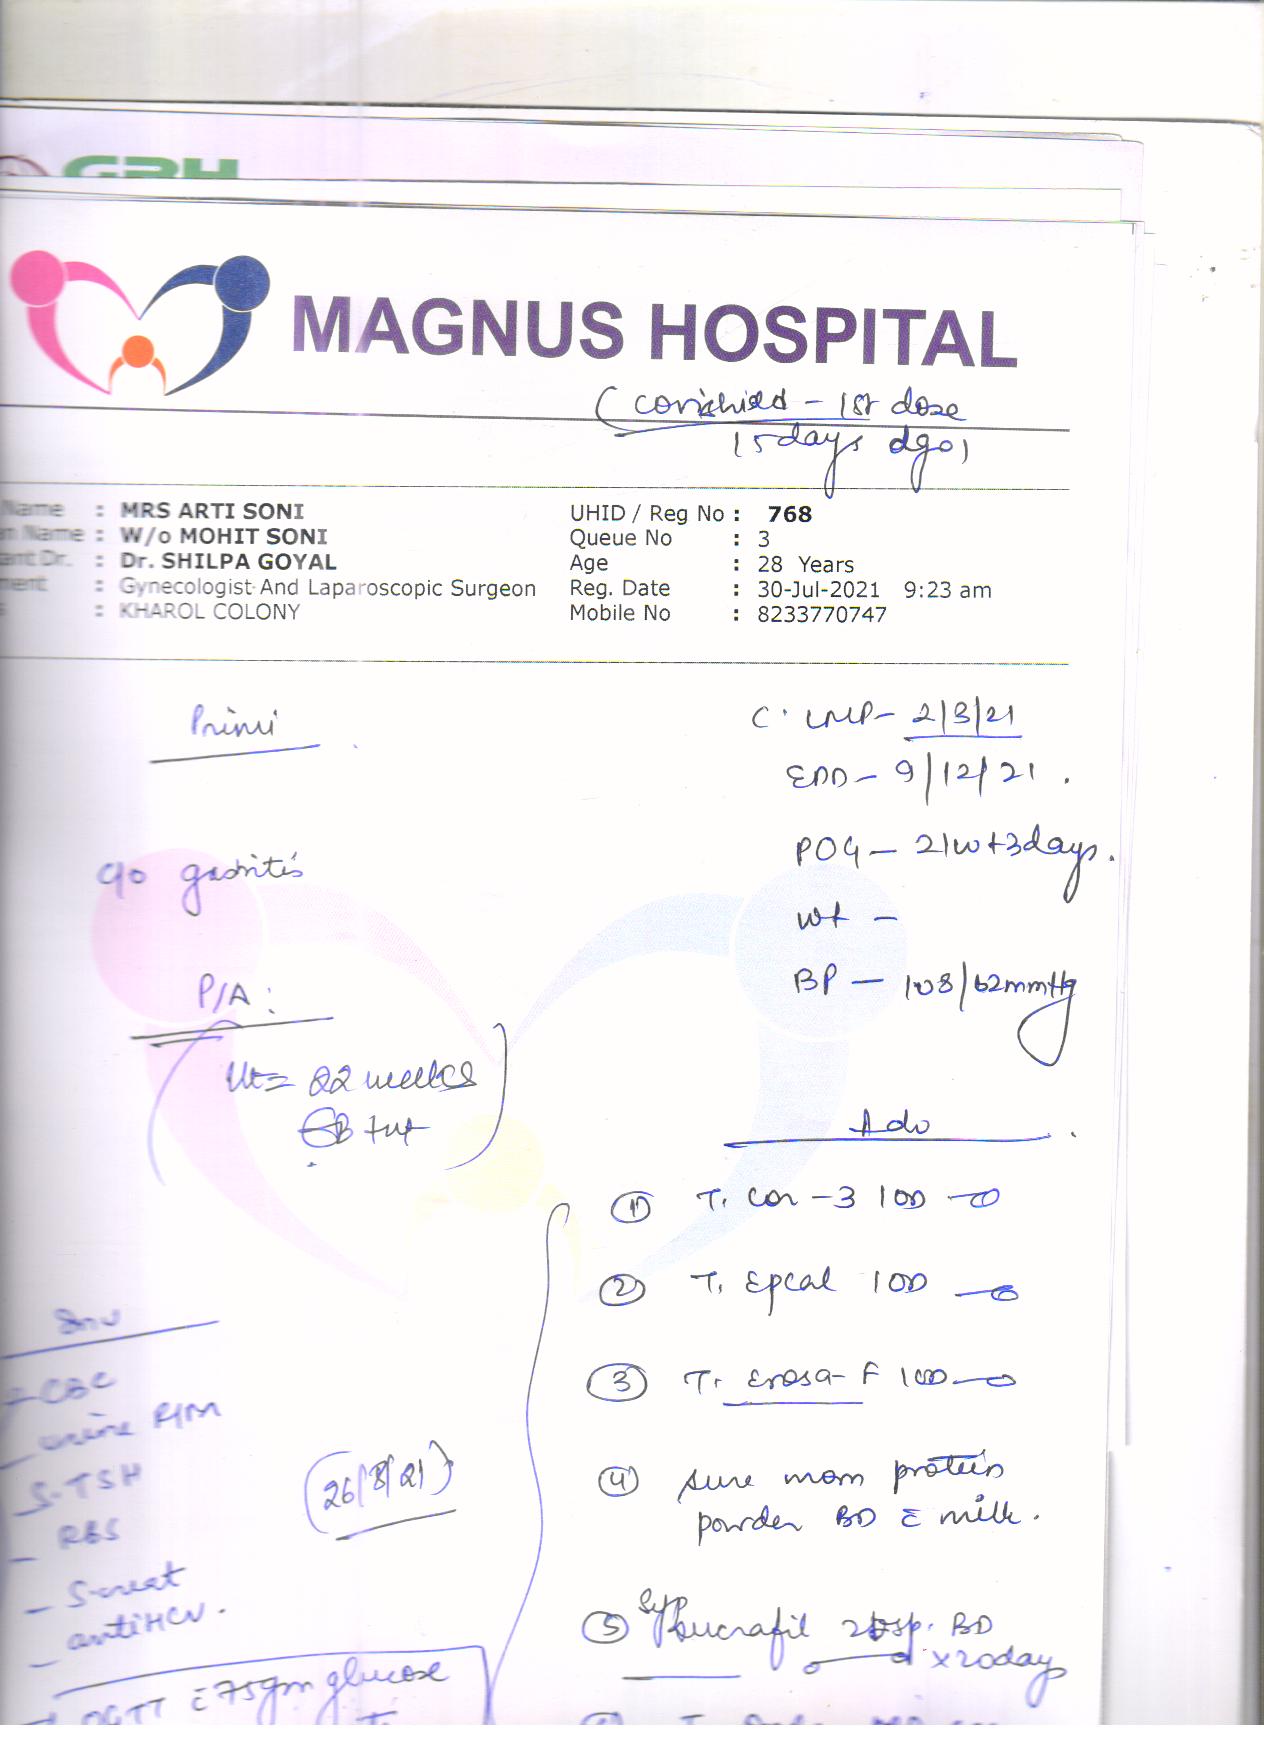 GBH
MAGNUS HOSPITAL
(Covishield - 1st dose
15 days ago)
Name : MRS ARTI SONI
an Name : W/o MOHIT SONI
tant Dr. : Dr. SHILPA GOYAL
ment : Gynecologist And Laparoscopic Surgeon
s : KHAROL COLONY
UHID / Reg No : 768
Queue No : 3
Age : 28 Years
Reg. Date : 30-Jul-2021 9:23 am
Mobile No : 8233770747
Primi
C. LMP - 2/3/21
EDD - 9/12/21.
POG - 21w+3days.
c/o gastritis
Wt -
BP - 108/62mmHg
P/A:
Ut = 22 weeks
Adv
① T. Cor-3 1OD
② T. Epcal 1OD
③ T. Erosa-F 1OD
④ sure mom protein
powder BD c milk.
⑤ Syp Sucrafil 2tsp. BD
x20days
Inv
- CBC
- urine R/M
- S-TSH
- RBS
- S-creat
- antiHCV.
(26/8/21)
OGTT c 75gm glucose